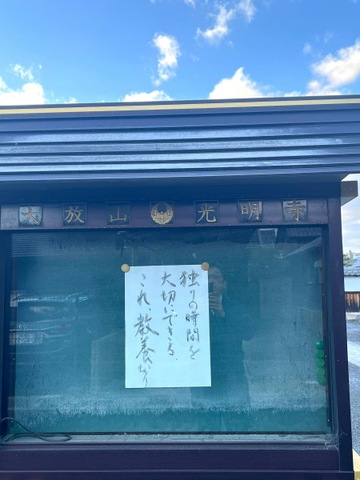 大放山光明寺
独りの時間を
大切にできる、
これ、教養なり